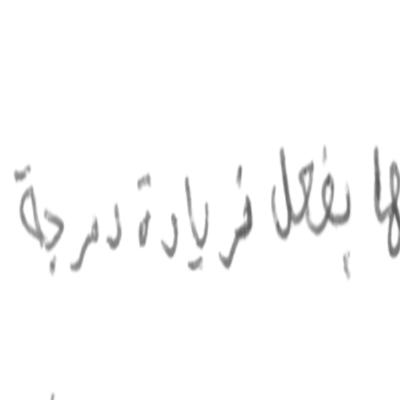 ها بفعل زيادة درجة